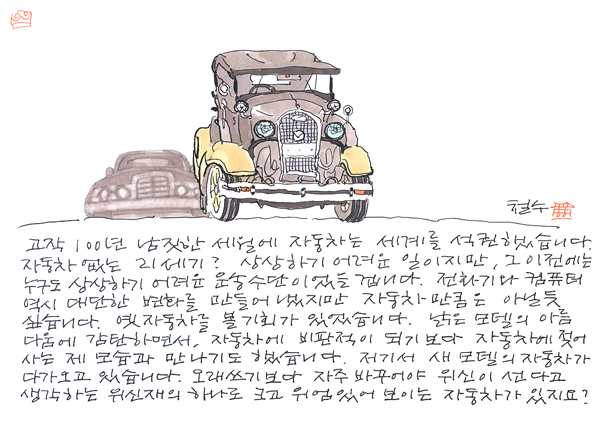 철수
고작 100년 남짓한 세월에 자동차는 세계를 석권했습니다.
자동차 없는 21세기? 상상하기 어려운 일이지만, 그 이전에는
누구도 상상하기 어려운 운송수단이었을 겁니다. 전화기와 컴퓨터
역시 대단한 변화를 만들어 냈지만 자동차 만큼은 아닐듯
싶습니다. 옛 자동차를 볼 기회가 있었습니다. 낡은 모델의 아름
다움에 감탄하면서, 자동차에 비판적이 되기보다 자동차에 젖어
사는 제 모습과 만나기도 했습니다. 저기서 새 모델의 자동차가
다가오고 있습니다. 오래쓰기보다 자주 바꾸어야 위신이 선다고
생각하는 위신재의 하나로 크고 위엄있어 보이는 자동차가 있지요?